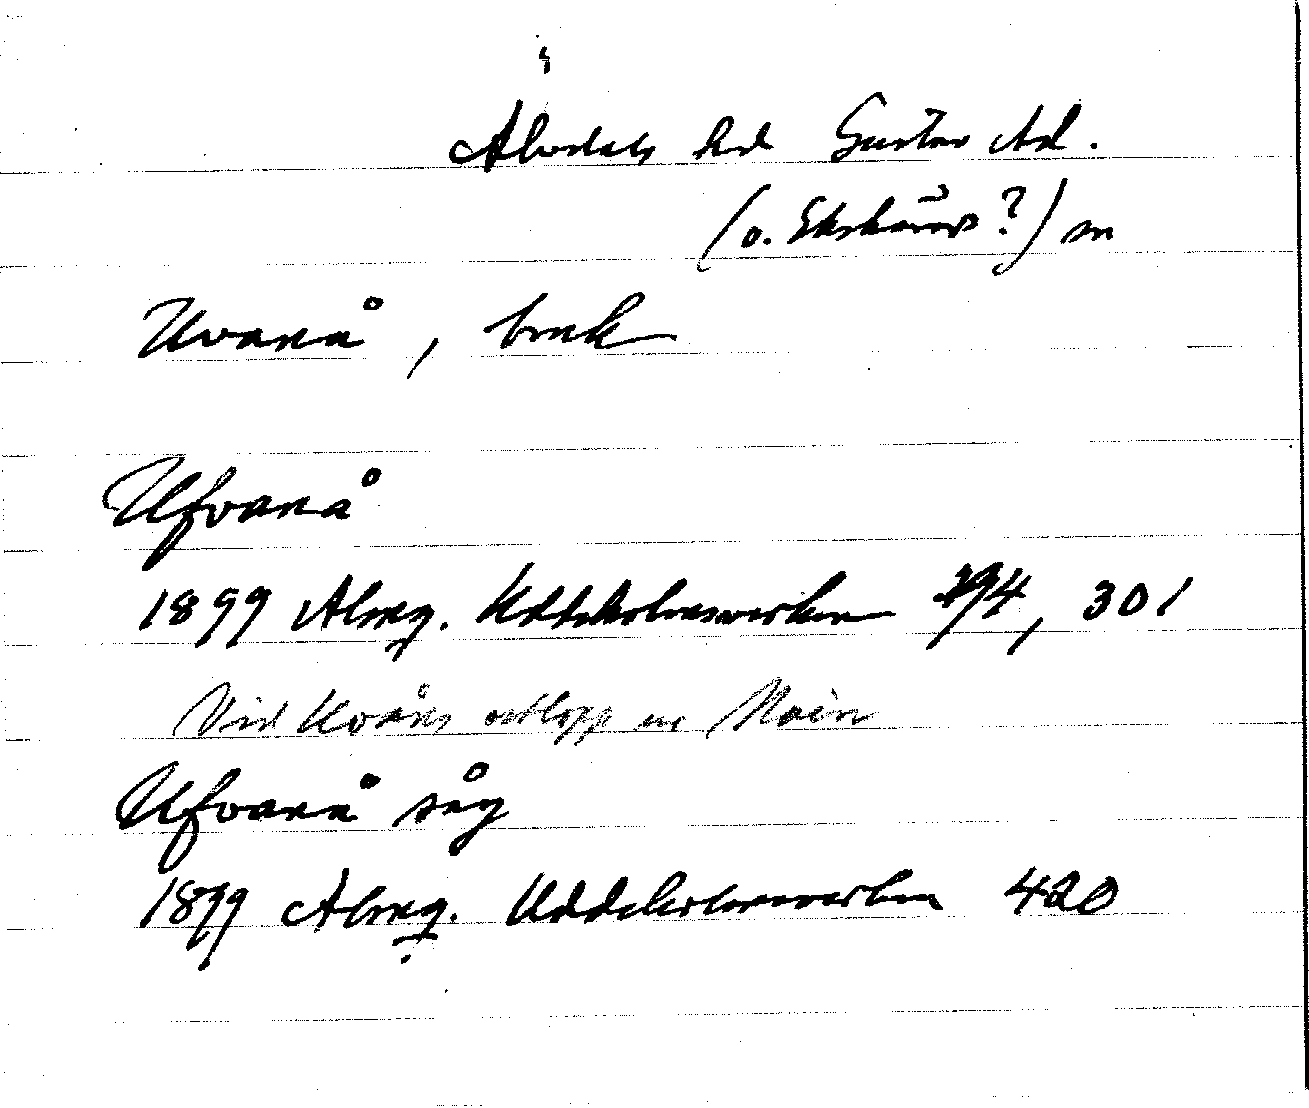 Älvdals hd Gustav Ad.
(o. Ekshärads?) sn
Uvanå, bruk
Ufvanå
1899 Almq. Uddeholmsverken 294, 301
Vid Uvåns utlopp ur Näin
Ufvanå såg
1899 Almq. Uddeholmsverken 420